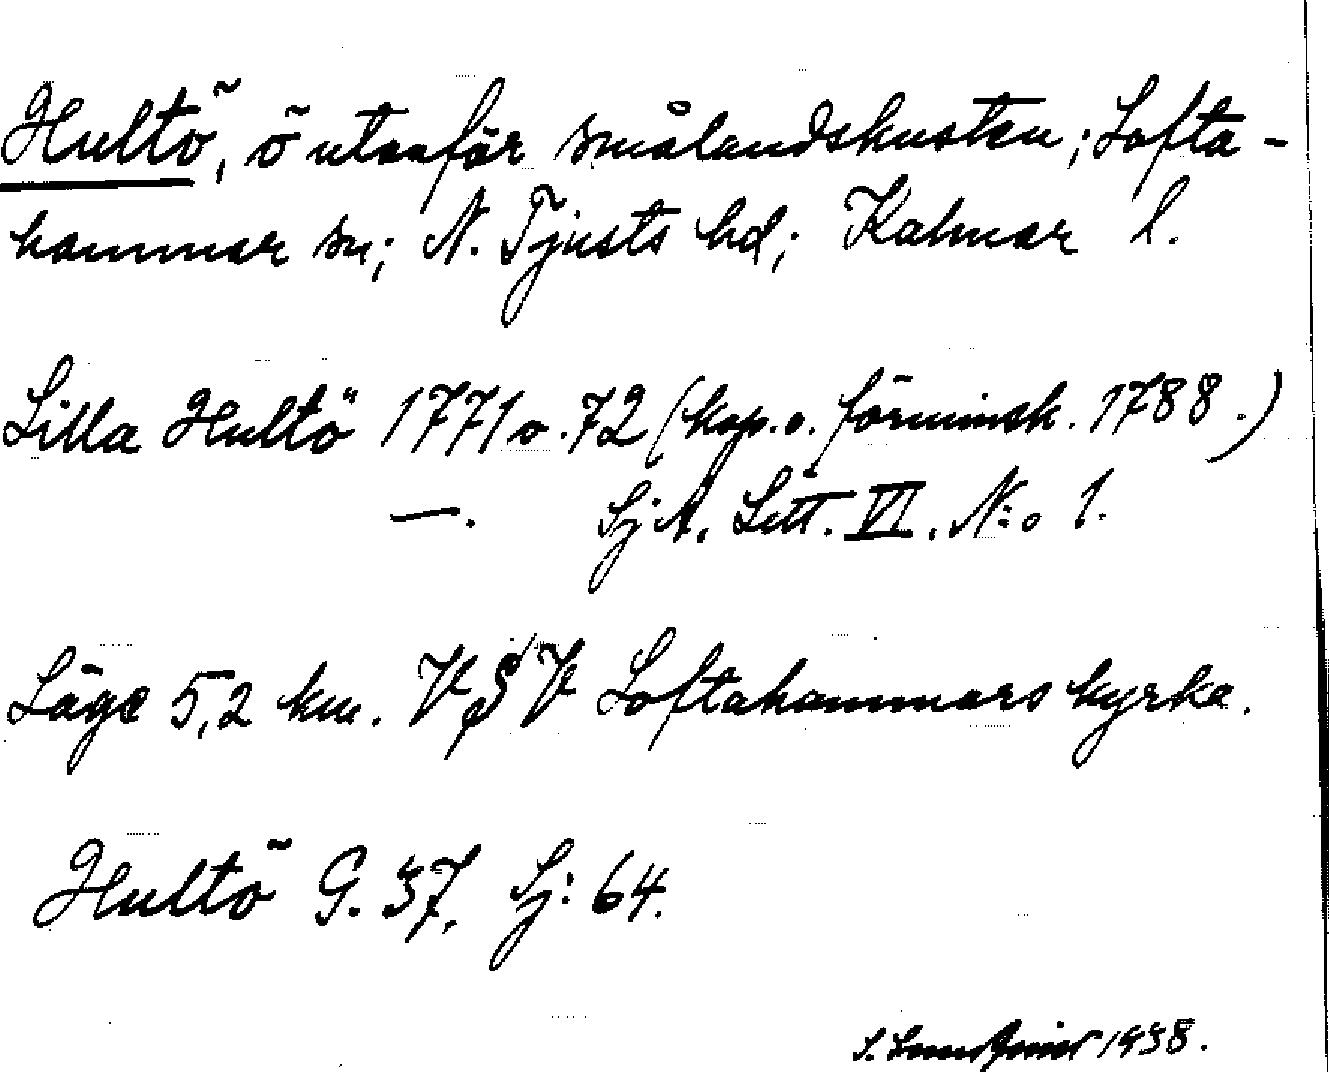 Hultö, ö utanför smålandskusten; Lofta-
hammar sn; N. Tjusts hd; Kalmar l.
Lilla Hultö 1771 o. 72 (kop. o. förminsk. 1788.)
—. Sj A. Litt. VI. N:o 1.
Läge 5,2 km. VSV Loftahammars kyrka.
Hultö G. 37, Sj: 64.
S. 1938.